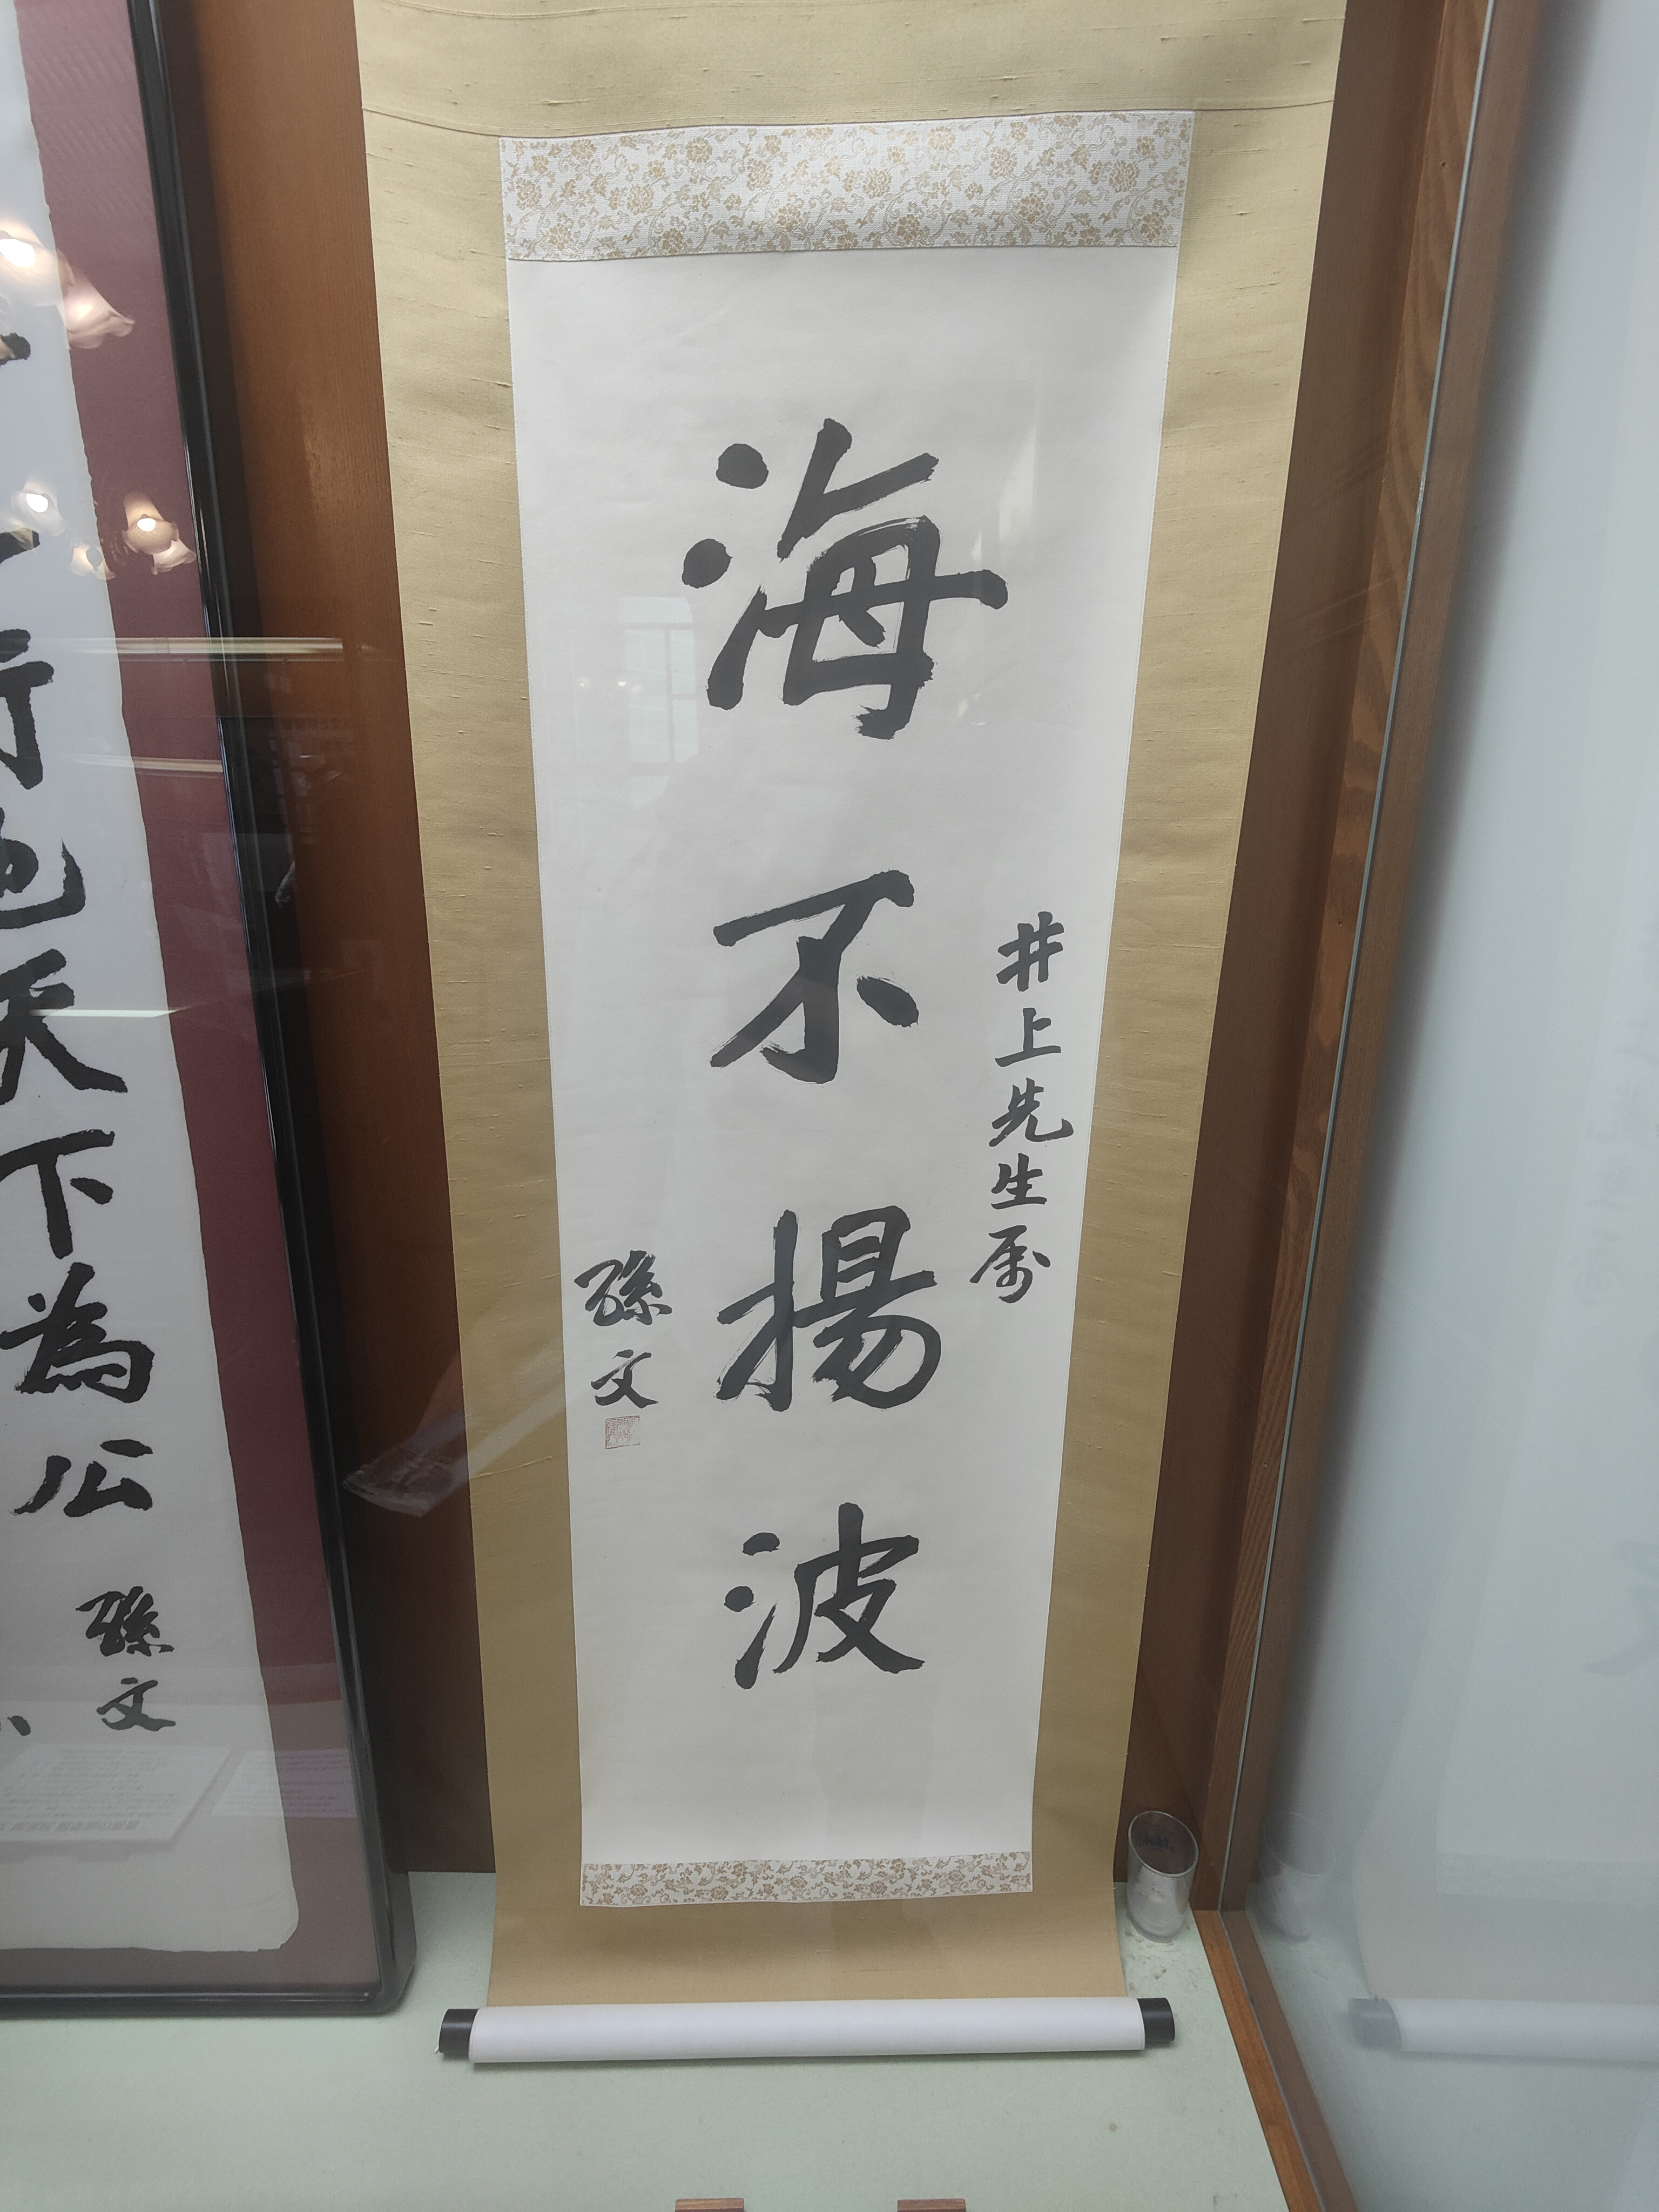 井上先生属
海不揚波
孫文
行也天下為公
孫文